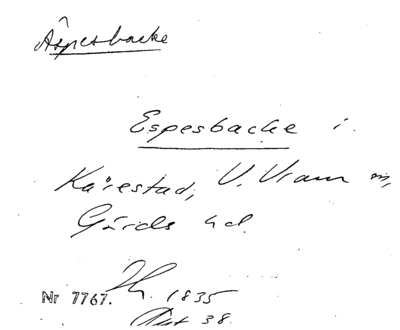 Äspesbacke
Espesbacke i
Kårestad, V. Vram sn,
Gärds hd.
Nr 7767. 1835
38.